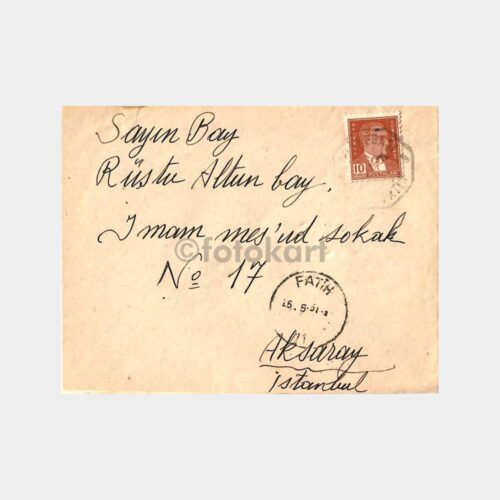 Sayın Bay
Rüstu Altun bay.
Imam mes'ud sokak
No 17
Aksaray
istanbul
10
FATİH
©fotokart